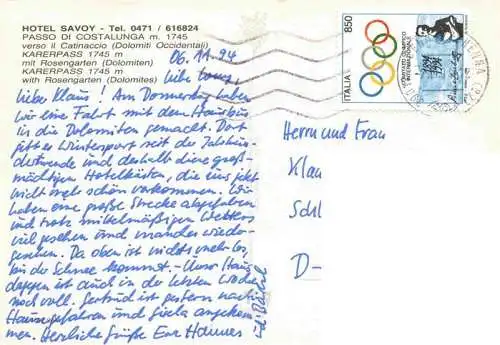 HOTEL SAVOY - Tel. 0471 / 616824
PASSO DI COSTALUNGA m. 1745
verso il Catinaccio (Dolomiti Occidentali)
KARERPASS 1745 m
mit Rosengarten (Dolomiten)
KARERPASS 1745 m
with Rosengarten (Dolomites)
06.11.94
Liebe
liebe Klaus! Am Donnerstag haben
wir eine Fahrt mit dem Hausbus
in die Dolomiten gemacht. Dort
gibt es Wintersport seit der Jahrhun-
dertwende und deshalb diese groß-
mächtigen Hotelkästen, die uns jetzt
nicht mehr schön vorkommen. Wir
haben eine große Strecke abgefahren
und trotz mittelmäßigen Wetters
viel gesehen und manches wieder-
gesehen. Da oben ist nichts mehr los,
bis der Schnee kommt. - Unser Haus
dagegen ist auch in der letzten Woche
noch voll. Gertrud ist gestern nach
Hause gefahren und Gisela angekom-
men. Herzliche Grüße Eur Hannes
u. Bärbel
850
ITALIA
COMITATO OLIMPICO
INTERNAZIONALE
Herrn und Frau
Klau
Schl
D-